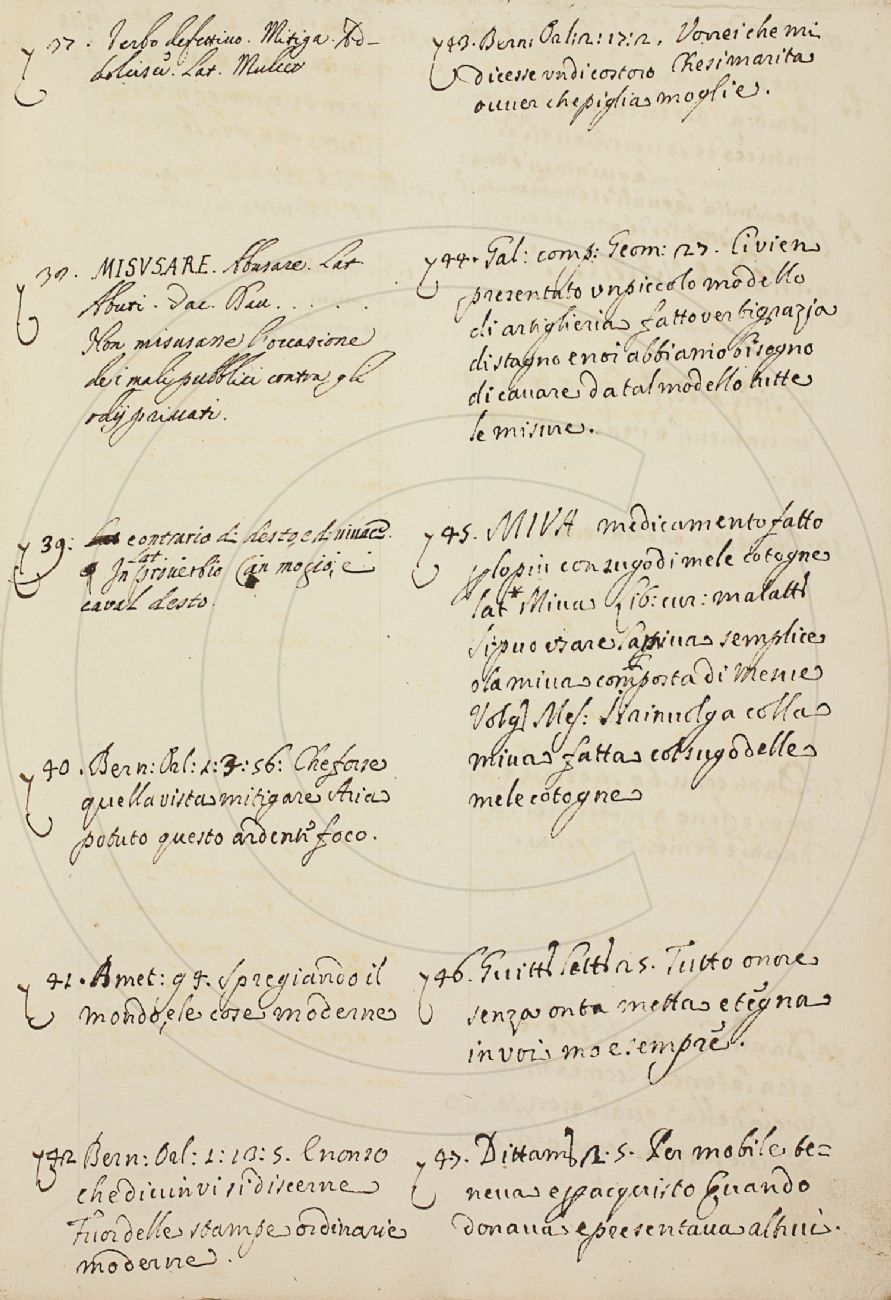 37. Verbo defettivo. Mitiga. Ad-
dolcisce. Lat. Mulceo
38. MISUSARE. Abusare. Lat
Abuti. Dav. . . . .
Non misusare l'occasione
de i mali pubblici contra gli
odij privati.
39. contrario di desto, e di vivace.
In proverbio Can mogio, e
caval desto.
40. Bern: Orl: 1: 3: 56: Che forse
quella vista mitigare Aria
potuto questo ardente foco.
41. Amet: 94. Spregiando il
mondo, e le cose moderne
42 Bern: Orl: 1: 13: 5. E non so
che divin vi si discerne
Fuor delle stampe ordinarie
moderne.
43. Bern: Orl: 2: 17: 2. Vorrei che mi
dicesse un di costoro Che si marita
ovver che piglia moglie.
44. Gal: comp: Geom: 27. Ci vien
presentato un piccolo modello
di artiglieria fatto verbigrazia
di stagno e noi abbiamo bisogno
di cavare da tal modello tutte
le misure.
45. MIVA medicamento fatto
plopiu con sugo di mele cotogne
lat Miva Lib: cur: malatt
Si puo usare la miva semplice
o la miva composta di Mesue
Volg Mes: Si rinvolga colla
miva fatta col sugo delle
mele cotogne
46. Guitt Lett 25. Tutto onore
senza onta metta e tegna
in voi mo e sempre.
47. Dittam 2. 5. Per mobile te=
neva e p acquisto Quando
donava e presentava altrui.